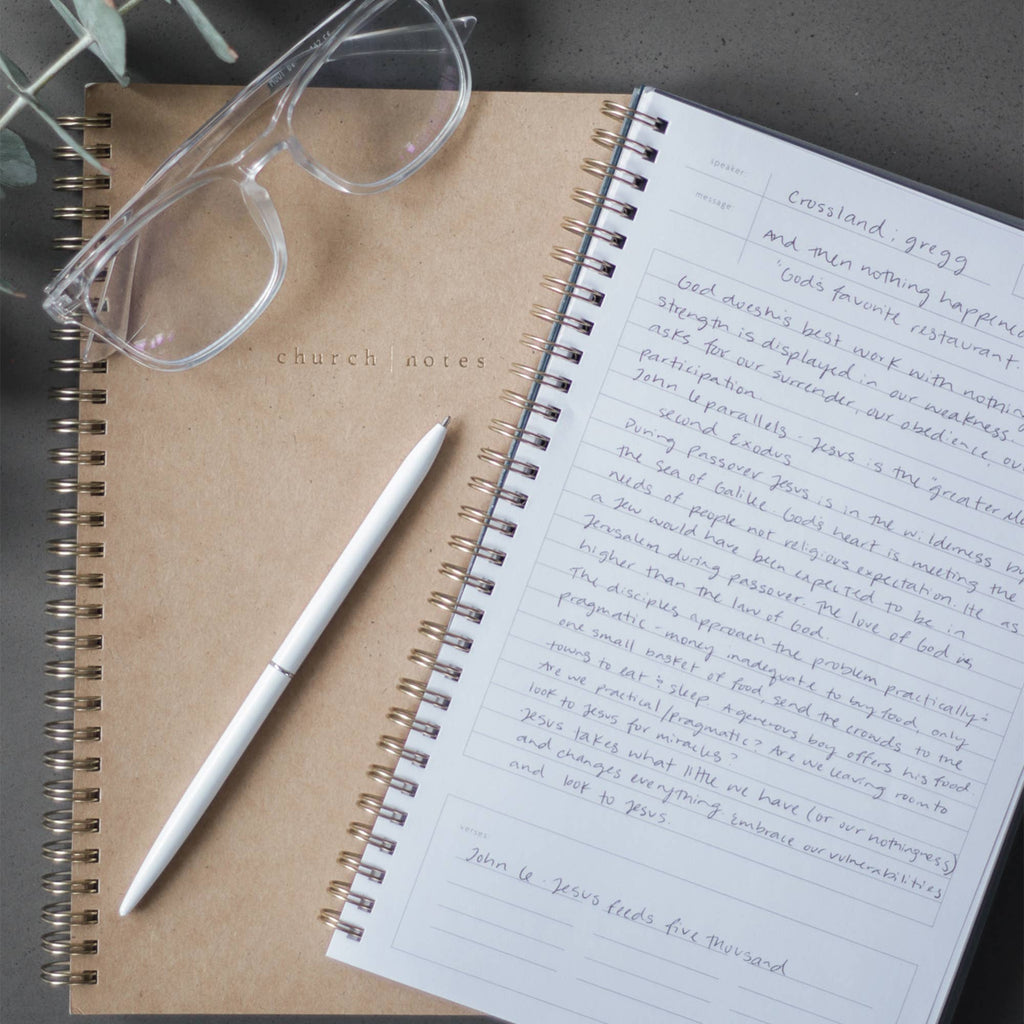 church | notes
speaker:
Crossland; gregg
message:
And then nothing happened
"God's favorite restaurant.
God doeshis best work with nothing
strength is displayed in our weakness.
asks for our surrender, our obedience, our
participation.
John 6 parallels - Jesus is the "greater
second Exodus
During Passover Jesus is in the wilderness by
the sea of Galilee. God's heart is meeting the
needs of people not religious expectation. He as
a Jew would have been expected to be in
Jerusalem during passover. The love of God is
higher than the law of God.
The disciples approach the problem practically &
pragmatic - money inadequate to buy food, only
one small basket of food, send the crowds to the
towns to eat & sleep. A generous boy offers his food.
Are we practical/pragmatic? Are we leaving room to
look to Jesus for miracles?
Jesus takes what little we have (or our nothingness)
and changes everything. Embrace our vulnerabilities
and look to Jesus.
verses:
John 6 - Jesus feeds five thousand